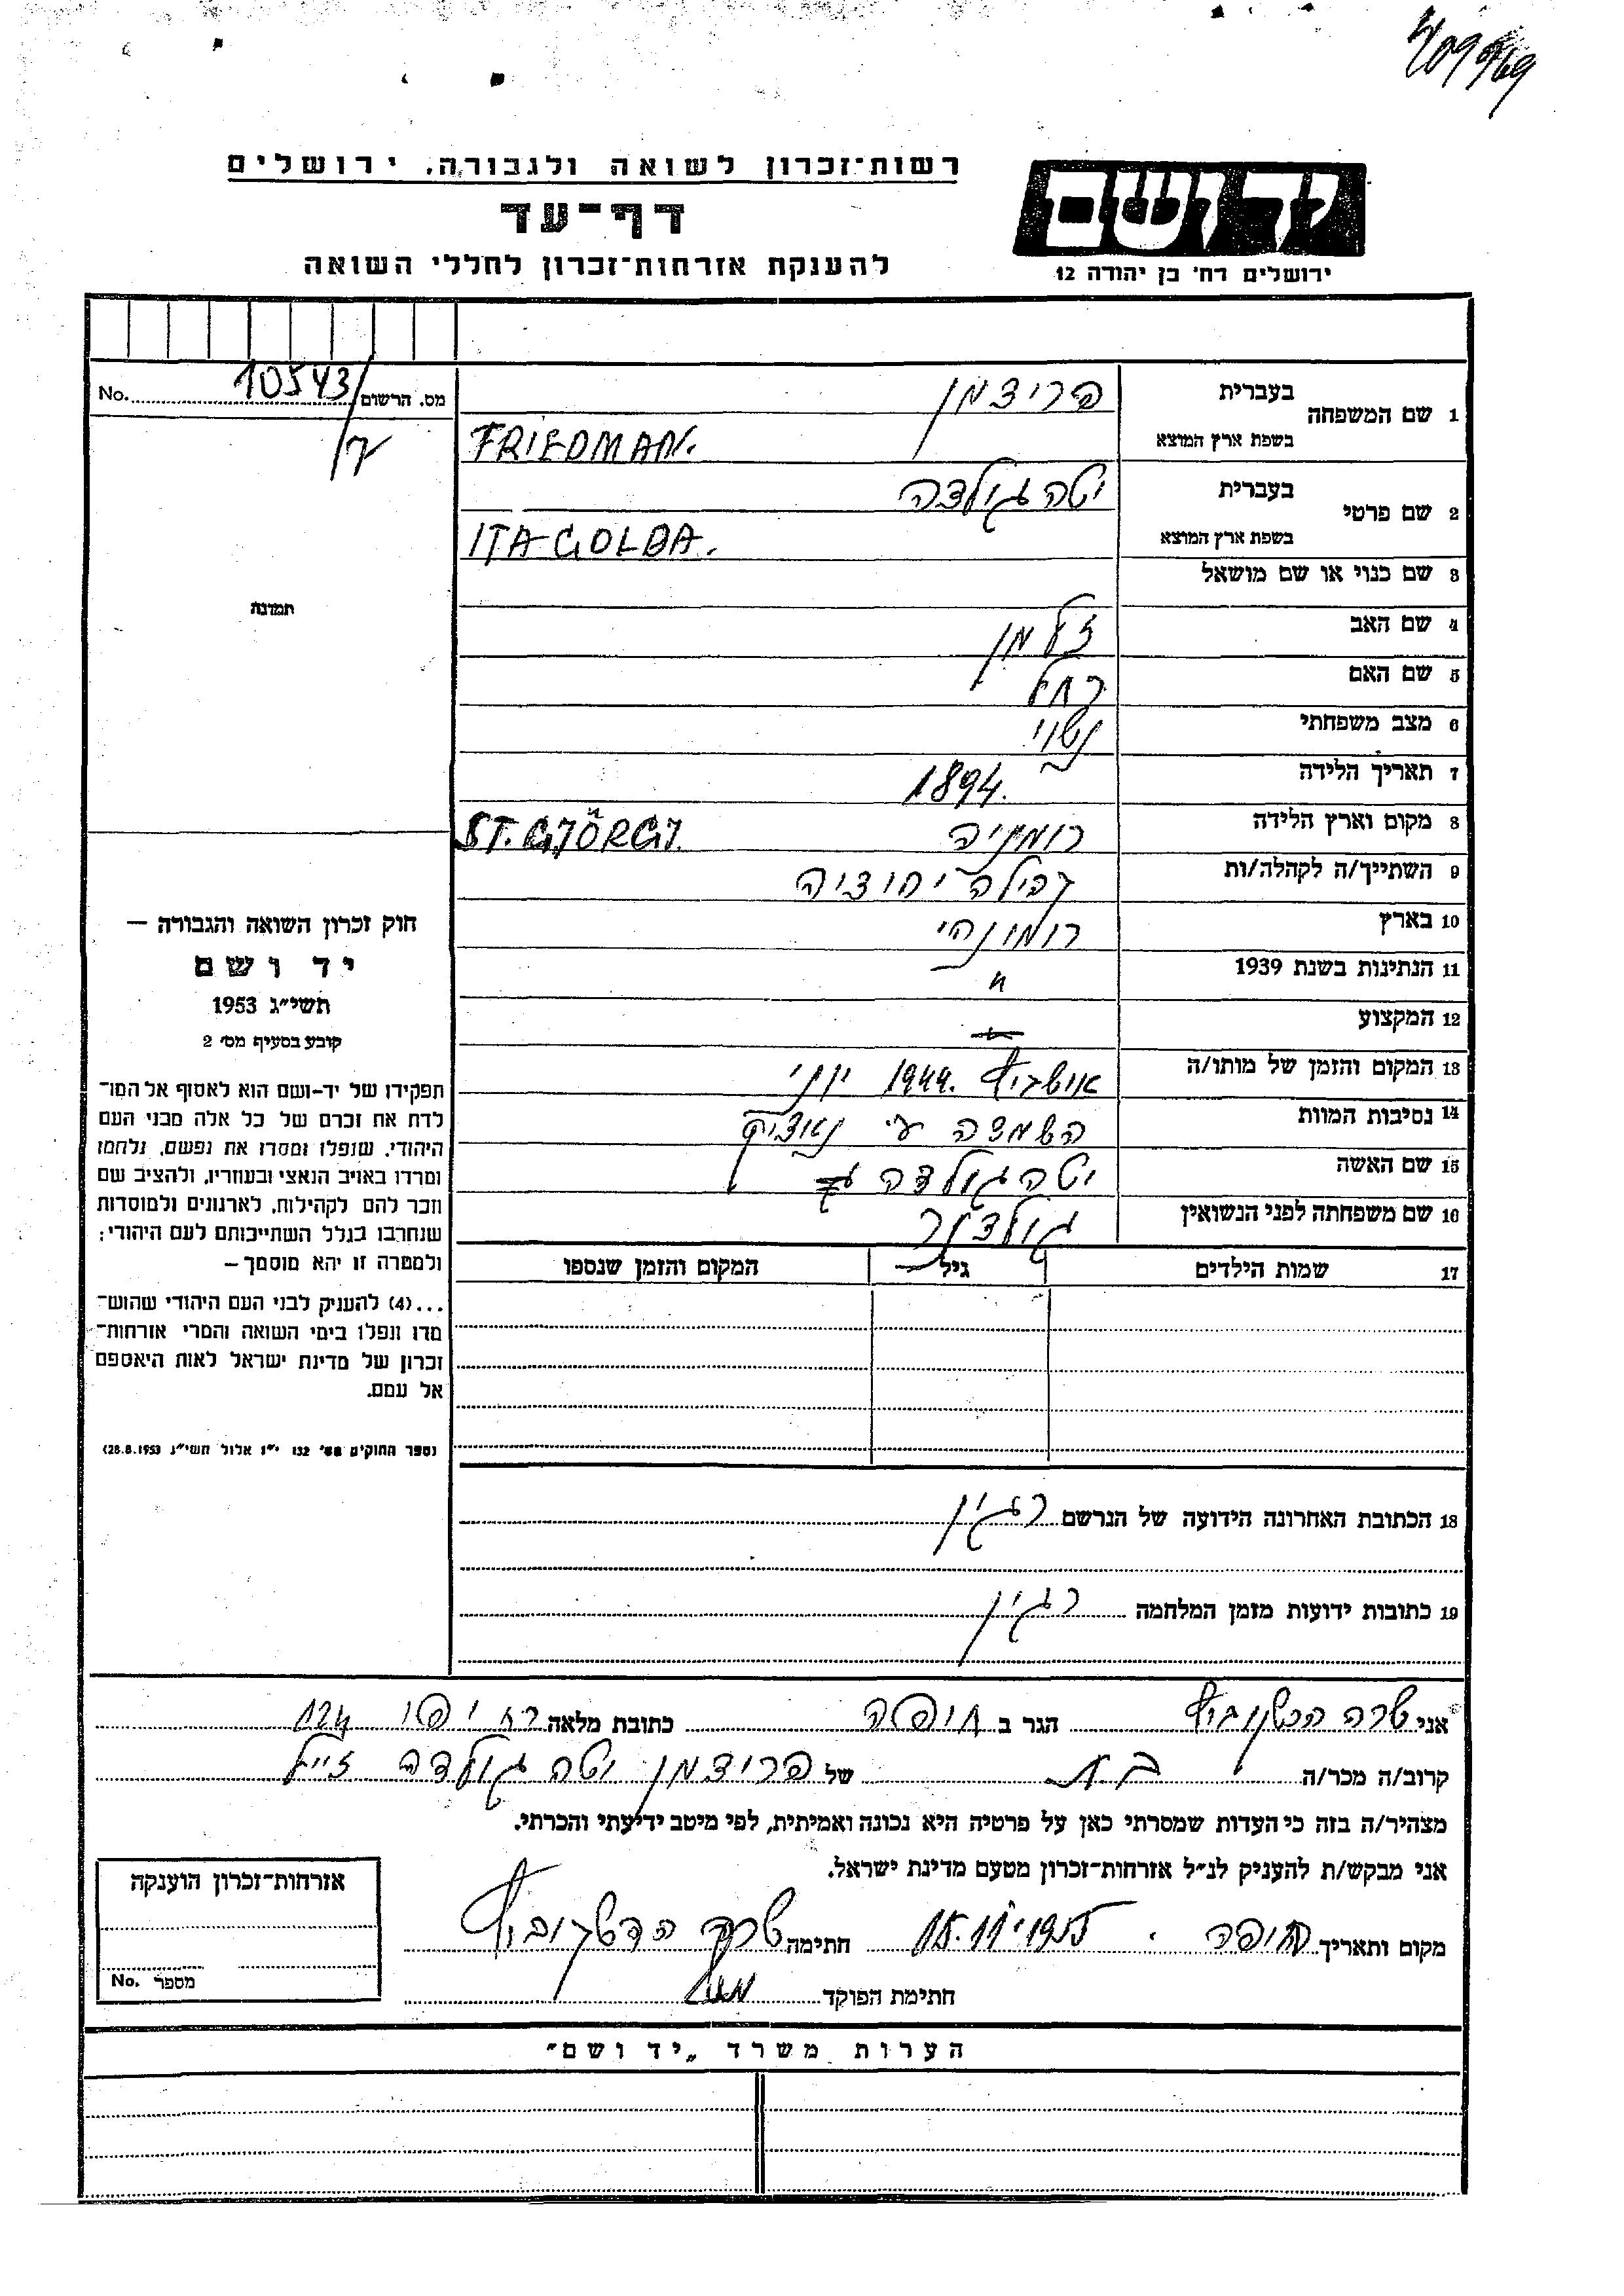 רשות-זכרון לשואה ולגבורה, ירושלים
דף-עד
להענקת אזרחות-זכרון לחללי השואה
יד ושם
ירושלים רח' בן יהודה 12
מס. הרשום 10543 No.
תמונה
1 שם המשפחה
בעברית פרידמן
בשפת ארץ המוצא FRIEDMAN.
2 שם פרטי
בעברית יטה גולדה
בשפת ארץ המוצא ITA GOLDA.
3 שם כנוי או שם מושאל
4 שם האב זלמן
5 שם האם רחל
6 מצב משפחתי נשוי
7 תאריך הלידה 1894.
8 מקום וארץ הלידה רומניה ST. GJÖRGJ.
9 השתייך/ה לקהלה/ות קהילה יהודיה
10 בארץ
11 הנתינות בשנת 1939 "
12 המקצוע
13 המקום והזמן של מותו/ה אושביץ 1944. יוני
14 נסיבות המוות השמדה ע"י נאצים
15 שם האשה יטה גולדה
16 שם משפחתה לפני הנשואין
17 שמות הילדים גיל המקום והזמן שנספו
18 הכתובת האחרונה הידועה של הנרשם רגין
19 כתובות ידועות מזמן המלחמה רגין
חוק זכרון השואה והגבורה —
יד ושם
תשי״ג 1953
קובע בסעיף מס׳ 2
תפקידו של יד-ושם הוא לאסוף אל המו-
לדת את זכרם של כל אלה מבני העם
היהודי, שנפלו ומסרו את נפשם, נלחמו
ומרדו באויב הנאצי ובעוזריו, ולהציב שם
וזכר להם לקהילות, לארגונים ולמוסדות
שנחרבו בגלל השתייכותם לעם היהודי;
ולמטרה זו יהא מוסמך —
...(4) להעניק לבני העם היהודי שהוש-
מדו ונפלו בימי השואה והמרי אזרחות-
זכרון של מדינת ישראל לאות היאספם
אל עמם.
(ספר החוקים מס׳ 132 י״ז אלול תשי״ג 28.8.1953)
אני שרה הגר ב חיפה כתובת מלאה רח יפו 124
קרוב/ה מכר/ה בת של פרידמן יטה גולדה ז״ל
מצהיר/ה בזה כי העדות שמסרתי כאן על פרטיה היא נכונה ואמיתית, לפי מיטב ידיעתי והכרתי.
אני מבקש/ת להעניק לנ״ל אזרחות-זכרון מטעם מדינת ישראל.
מקום ותאריך חיפה. 15.11.1955 חתימה שרה
חתימת הפוקד
אזרחות-זכרון הוענקה
מספר No.
הערות משרד „יד ושם״